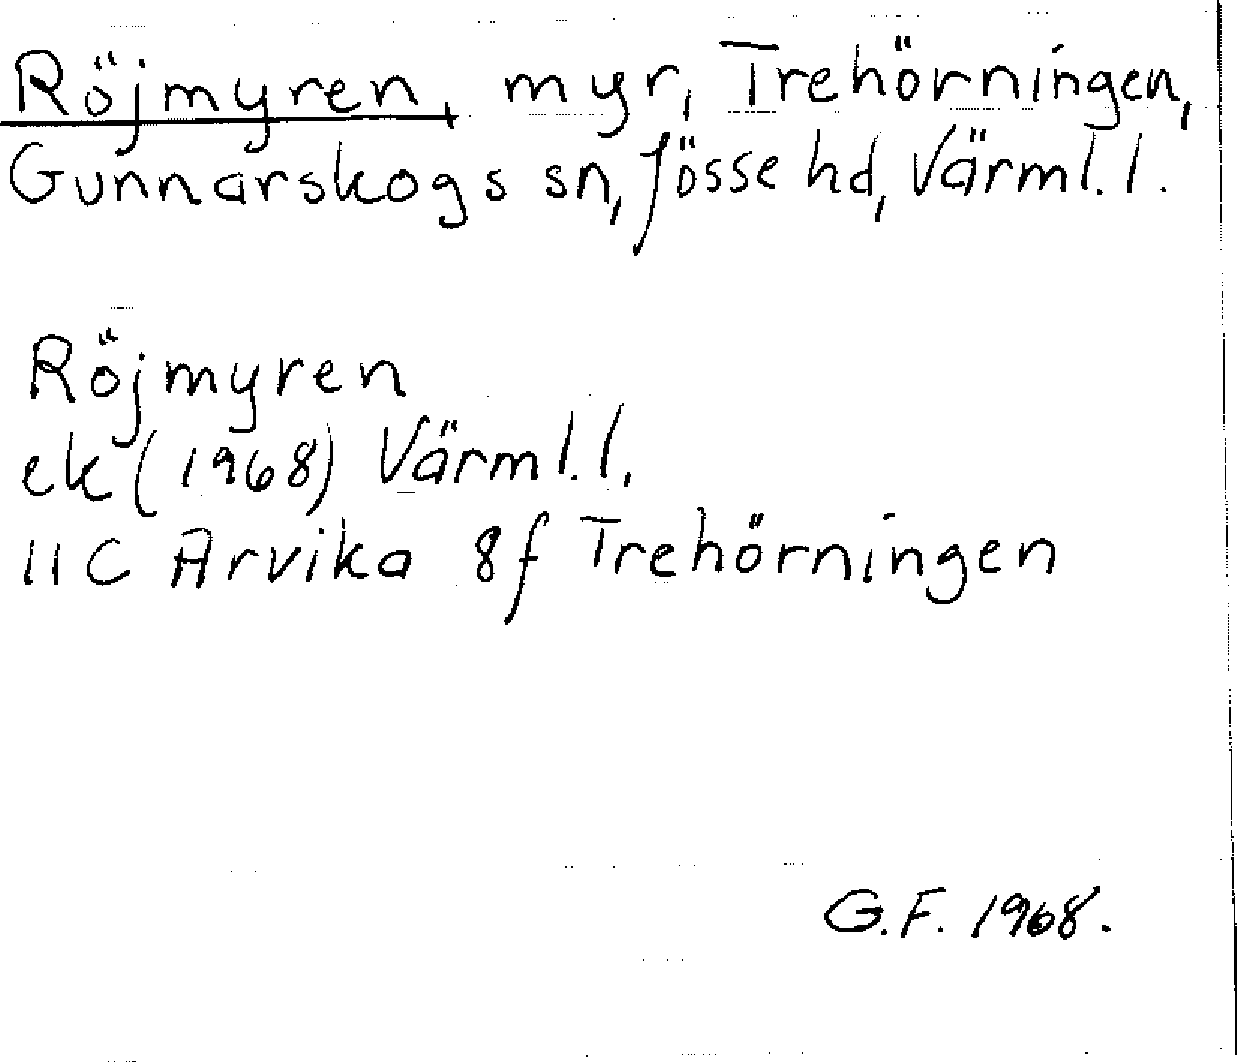 Röjmyren, myr, Trehörningen,
Gunnarskogs sn, Jösse hd, Värml. l.
Röjmyren
ek (1968) Värml. l.
11C Arvika 8f Trehörningen
G.F. 1968.